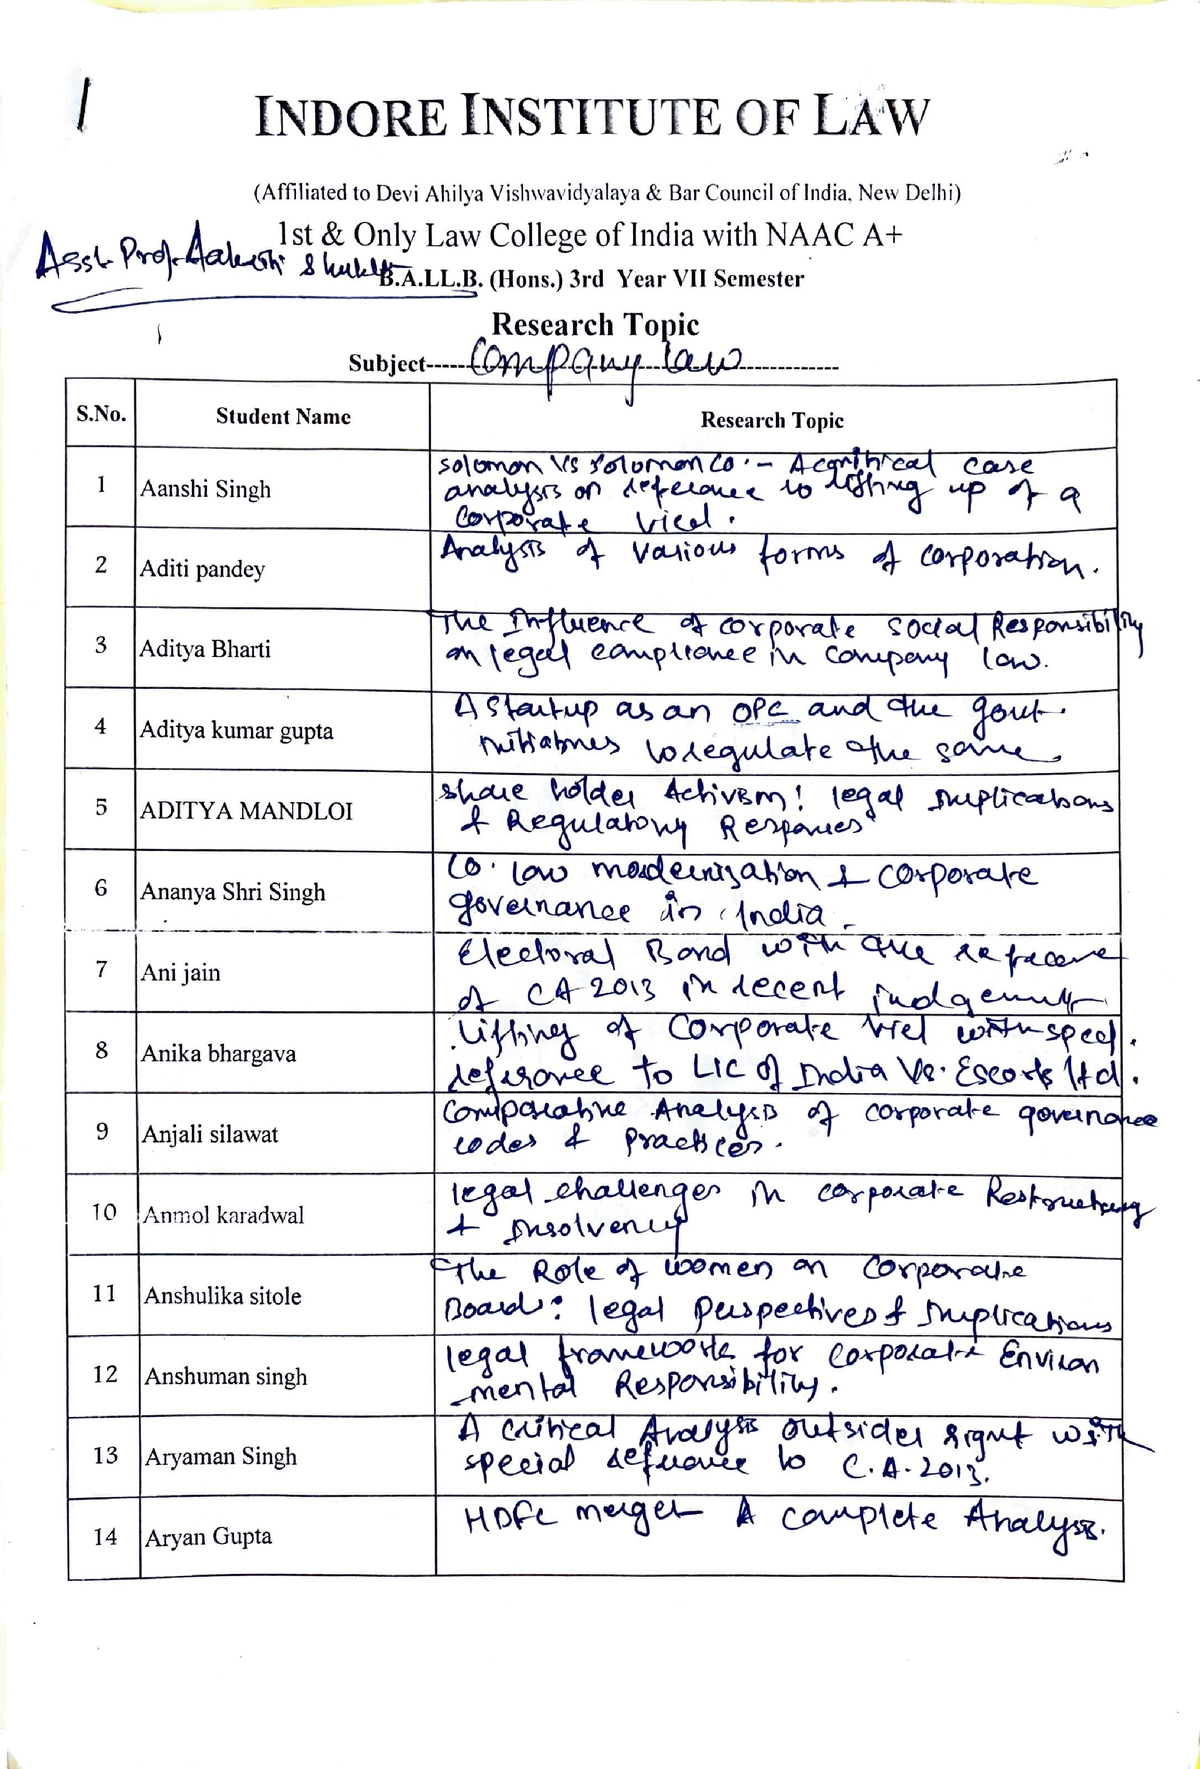 1
INDORE INSTITUTE OF LAW
(Affiliated to Devi Ahilya Vishwavidyalaya & Bar Council of India, New Delhi)
1st & Only Law College of India with NAAC A+
Asst. Prof. Shukla
B.A.LL.B. (Hons.) 3rd Year VII Semester
Research Topic
Subject------Company law-------------
S.No. Student Name Research Topic
1 Aanshi Singh
Solomon Vs Solomon Co. - A critical case
analysis on reference to lifting up of a
Corporate viel.
2 Aditi pandey
Analysis of various forms of corporation.
3 Aditya Bharti
The Influence of corporate social Responsibility
on legal compliance in company law.
4 Aditya kumar gupta
A Startup as an OPC and the govt.
initiatives to regulate the same.
5 ADITYA MANDLOI
Share holder Activism! legal Implications
& Regulatory Responses
6 Ananya Shri Singh
Co. law modernization & corporate
governance in India.
7 Ani jain
Electoral Bond with the reference
of CA 2013 in recent judgements
8 Anika bhargava
Lifting of Corporate viel with special
reference to LIC of India Vs. Escorts ltd.
9 Anjali silawat
Comparative Analysis of corporate governance
codes & practices.
10 Anmol karadwal
legal challenges in corporate Restructuring
& Insolvency
11 Anshulika sitole
The Role of women on Corporate
Board: legal perspectives & Implications
12 Anshuman singh
legal frameworks for corporate Environ
mental Responsibility.
13 Aryaman Singh
A critical Analysis outsider right with
special reference to C.A. 2013.
14 Aryan Gupta
HDFC merger A complete Analysis.